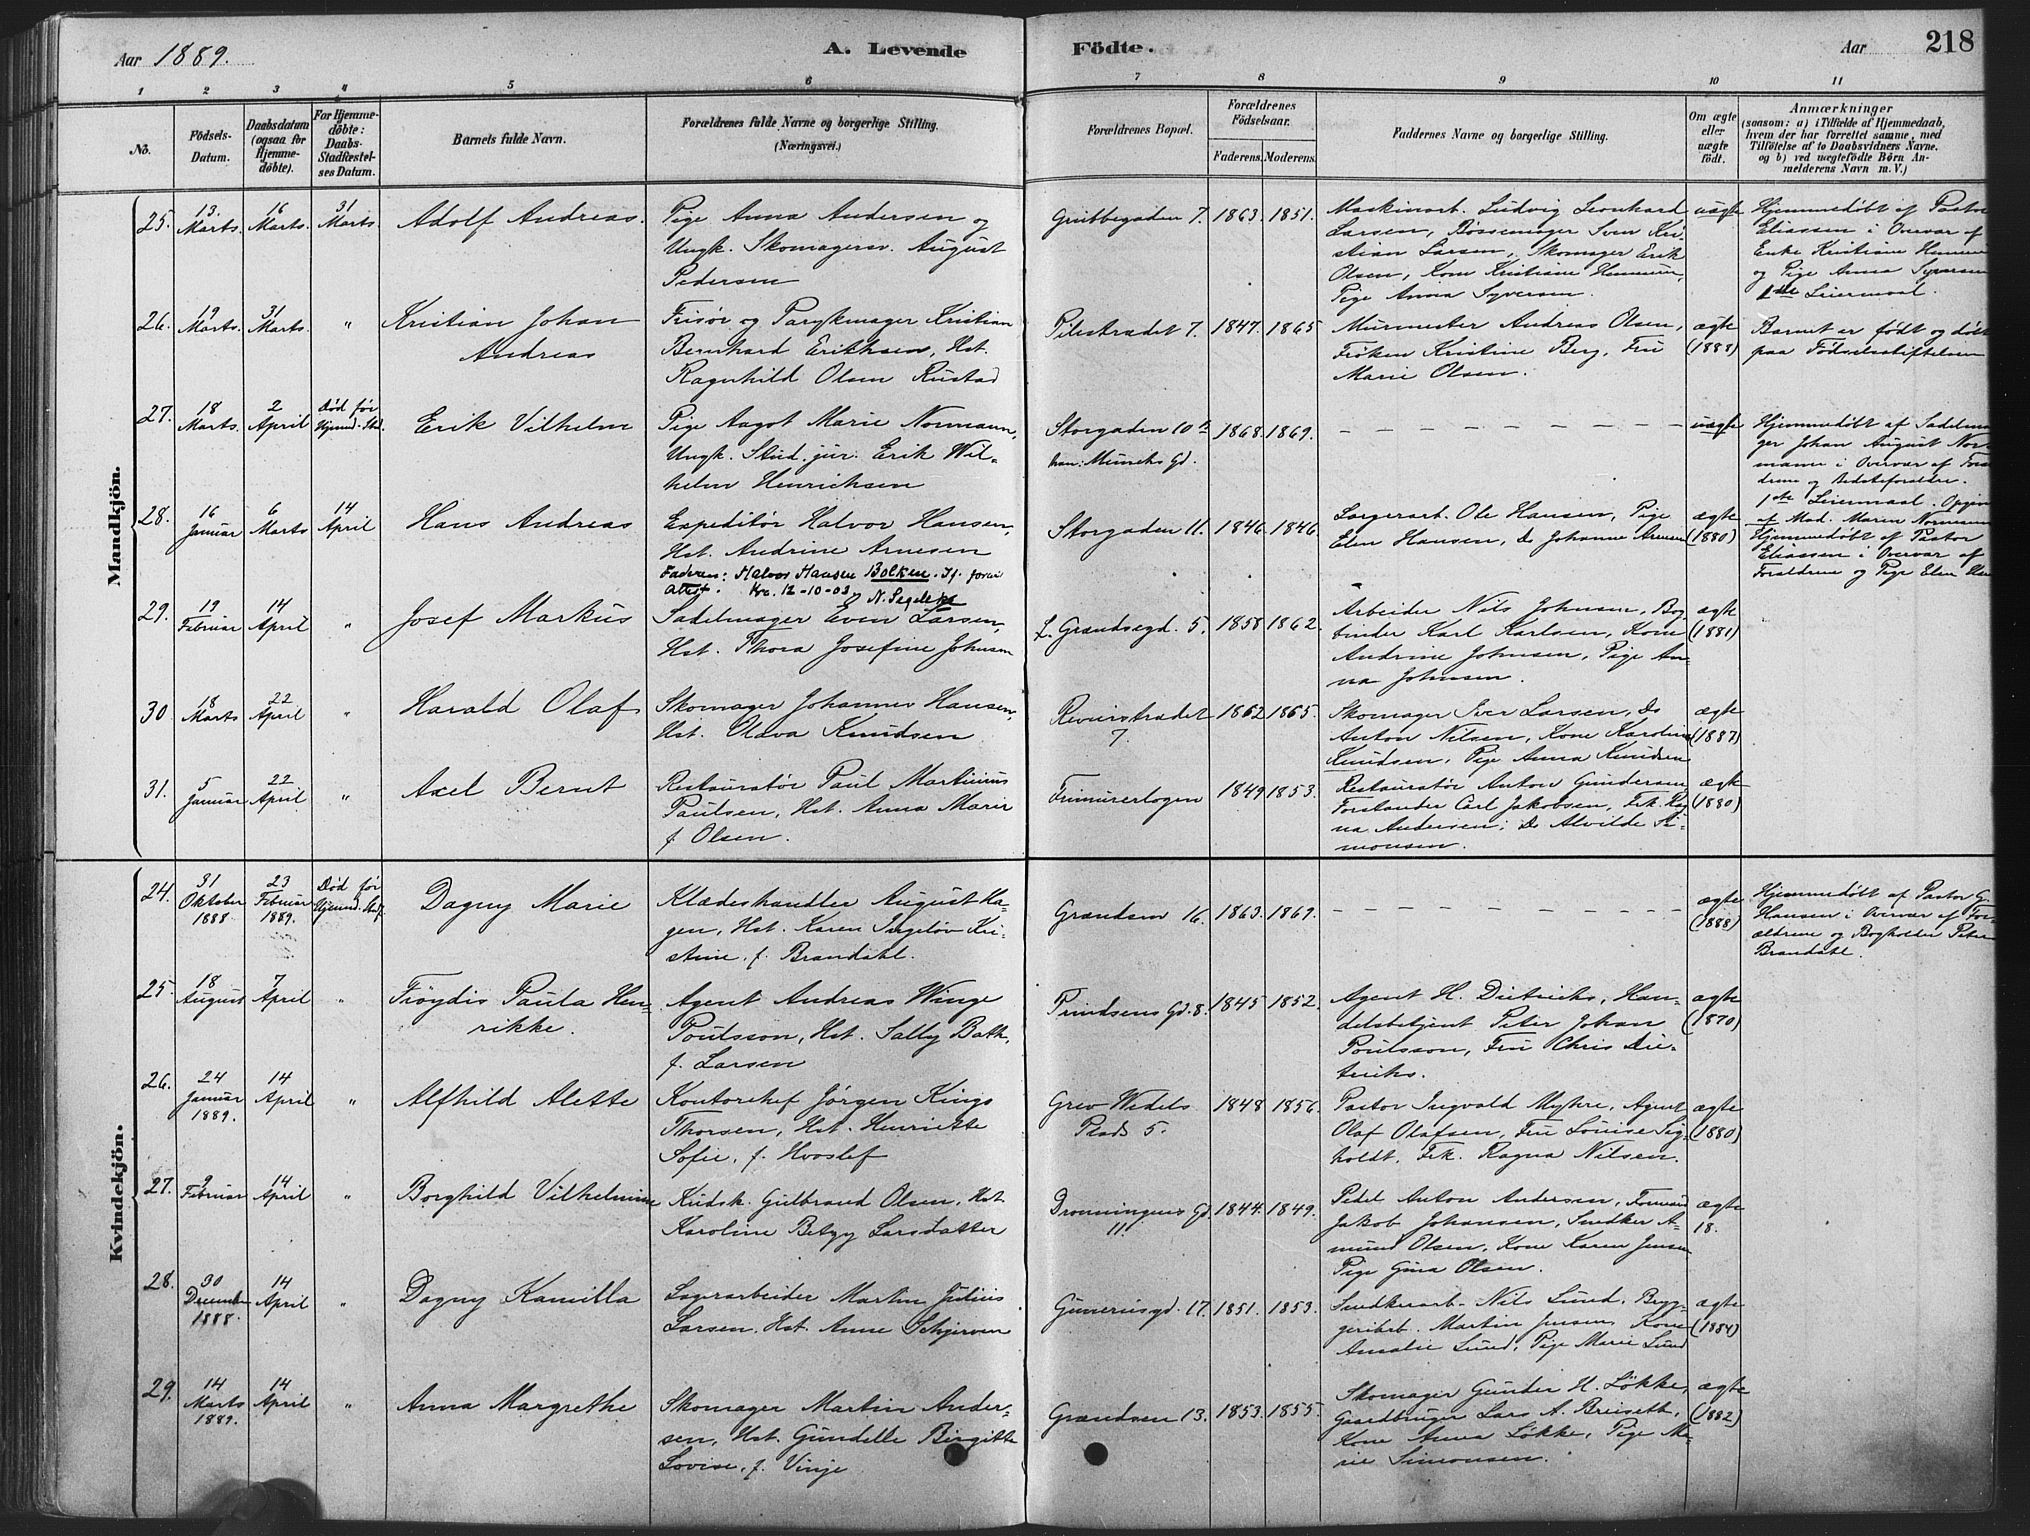 Aar 1889.
A. Levende Födte.
Aar
218
1 2 3 4 5 6 7 8 9 10 11
No.
Födsels-Datum.
Daabsdatum (ogsaa for Hjemme-döbte).
For Hjemme-döbte: Daabs-Stadfæstel-ses Datum.
Barnets fulde Navn.
Forældrenes fulde Navne og borgerlige Stilling.
(Næringsvei.)
Forældrenes Bopæl.
Forældrenes Födselsaar.
Faderens. Moderens.
Faddernes Navne og borgerlige Stilling.
Om ægte eller uægte födt.
Anmærkninger
(saasom: a) i Tilfælde af Hjemmedaab,
hvem der har forrettet samme, med
Tilföielse af to Daabsvidners Navne.
og b) ved uægtefödte Börn An-
melderens Navn m. V.)
Mandkjön.
25. 13. Marts. 16 Marts. 31 Marts.
Adolf Andreas.
Pige Anna Andersen og
Ungk. Skomagersv. August
Pedersen
Grubbegaden 7. 1863. 1851.
Maskinarb. Ludvig Leonhard
Larsen, Bøssemager Sven Kri-
stian Larsen, Skomager Erik
Olsen, Kone Kristiane
Pige Anna Syversen.
uægte
Hjemmedøbt af Pastor
Eliassen i Overvær af
Enke Kristiane
og Pige Anna Syversen
1ste Leiermaal.
26. 19 Marts. 31 Marts. "
Kristian Johan
Andreas
Frisør og Parykmager Kristian
Bernhard Erikhsen, Hst.
Ragnhild Olsen Rustad
Pilestrædet 7. 1847. 1865
Murmester Andreas Olsen,
Frøken Kristine Berg, Fru
Marie Olsen.
ægte
(1888)
Barnet er født og døbt
paa Fødselsstiftelsen
27. 18 Marts. 2 April Død før Hjemd. Stad.
Erik Vilhelm
Pige Aagot Marie Normann,
Ungk. Stud. jur. Erik Wil-
helm Henrichsen
Storgaden 10 b
han: Munchs Gd.
1868. 1869.
uægte
Hjemmedøbt af Sadelma-
ger Johan August Nor-
mann i Overvær af Foræl-
drene og Bedsteforældre.
1ste Leiermaal. Opgivet
af Mad. Maren Normann
28. 16 Januar 6 Marts 14 April
Hans Andreas
Expeditør Halvor Hansen,
Hst. Andrine Arnesen
Faderen: Halvor Hansen Bolken. If. forev.
attest. Kra. 12-10-03
Storgaden 11. 1846. 1846.
Sørgerarb. Ole Hansen, Pige
Elen Hansen, Do Johanne Arnesen
ægte
(1880)
Hjemmedøbt af Pastor
Eliassen i Overvær af
Forældrene og Pige Elen
29. 19 Februar 14 April "
Josef Markus
Sadelmager Even Larsen,
Hst. Thora Josefine Johnsen
L. Grændsegd. 5. 1858 1862.
Arbeider Nils Johnsen, Bog-
binder Karl Karlsen, Kone
Andrine Johnsen, Pige An-
na Johnsen.
ægte
(1881)
30. 18 Marts 22 April "
Harald Olaf
Skomager Johannes Hansen,
Hst. Olava Knudsen
Revierstrædet
7.
1862 1865.
Skomager Iver Larsen, Do
Anton Nilsen, Kone Karoline
Knudsen, Pige Anna Knudsen
ægte
(1887)
31. 5 Januar 22 April "
Axel Bernt
Restauratør Paul Martinius
Paulsen, Hst. Anna Marie
f. Olsen.
Frimurerlogen 1849 1853.
Restauratør Anton Gundersen
Forstander Carl Jakobsen, Frk. Rag-
na Andersen, Do Alvilde Si-
monsen.
ægte
(1880)
Kvindekjön.
24. 31 Oktober 1888. 23 Februar 1889. Død før Hjemd. Stad.
Dagny Marie
Klædeshandler August Ha-
gen, Hst. Karen Ingeløv Kri-
stine, f. Brandahl.
Grændsen 16. 1863. 1869.
ægte
(1888)
Hjemmedøbt af Pastor G.
Hansen i Overvær af For-
ældrene og Bogholder Peter
Brandahl.
25. 18 August 7 April "
Frøydis Paula Hen-
rikke.
Agent Andreas Winge
Poulsson, Hst. Sally Bath,
f. Larsen
Prindsens Gd. 8. 1845 1852.
Agent H. Dietrichs, Han-
delsbetjent Peter Johan
Poulsson, Fru Chris Die-
trichs.
ægte
(1870)
26. 24 Januar 1889. 14 April "
Alfhild Alette
Kontorchef Jørgen Kings
Thorsen, Hst. Henriette
Sofie, f. Hvoslef
Grev Wedels
Plads 5.
1848 1856.
Pastor Ingvald Myhre, Agent
Olaf Olafsen, Fru Louise Sig-
holdt, Frk. Ragna Nilsen.
ægte
(1880)
27. 2 Februar 14 April "
Borghild Vilhelmine
Kudsk Gulbrand Olsen, Hst.
Karoline Betzy Larsdatter
Dronningens Gd.
11.
1844. 1849.
Pedel Anton Andersen, Formand
Jakob Johansen, Snedker A-
mund Olsen, Kone Karen Jensen
Pige Gina Olsen.
ægte
18.
28. 30 December 1888. 14 April "
Dagny Kamilla
Lagerarbeider Martin Julius
Larsen, Hst. Anne Schjerven
Gunerius gd. 17. 1851. 1853.
Snedkerarb. Nils Lund, Bryg-
geriarb. Martin Jensen, Kone
Amalie Lund, Pige Marie Lund
ægte
(1884)
29. 14 Marts 1889. 14 April "
Anna Margrethe
Skomager Martin Ander-
sen, Hst. Gundelle Birgitte
Lovise, f. Vinje
Grændsen 13. 1853. 1855.
Skomager Gunder H. Løkke,
Gaardbruger Lars A. Breiseth,
Kone Anna Løkke, Pige Ma-
rie Simonsen.
ægte
(1882)